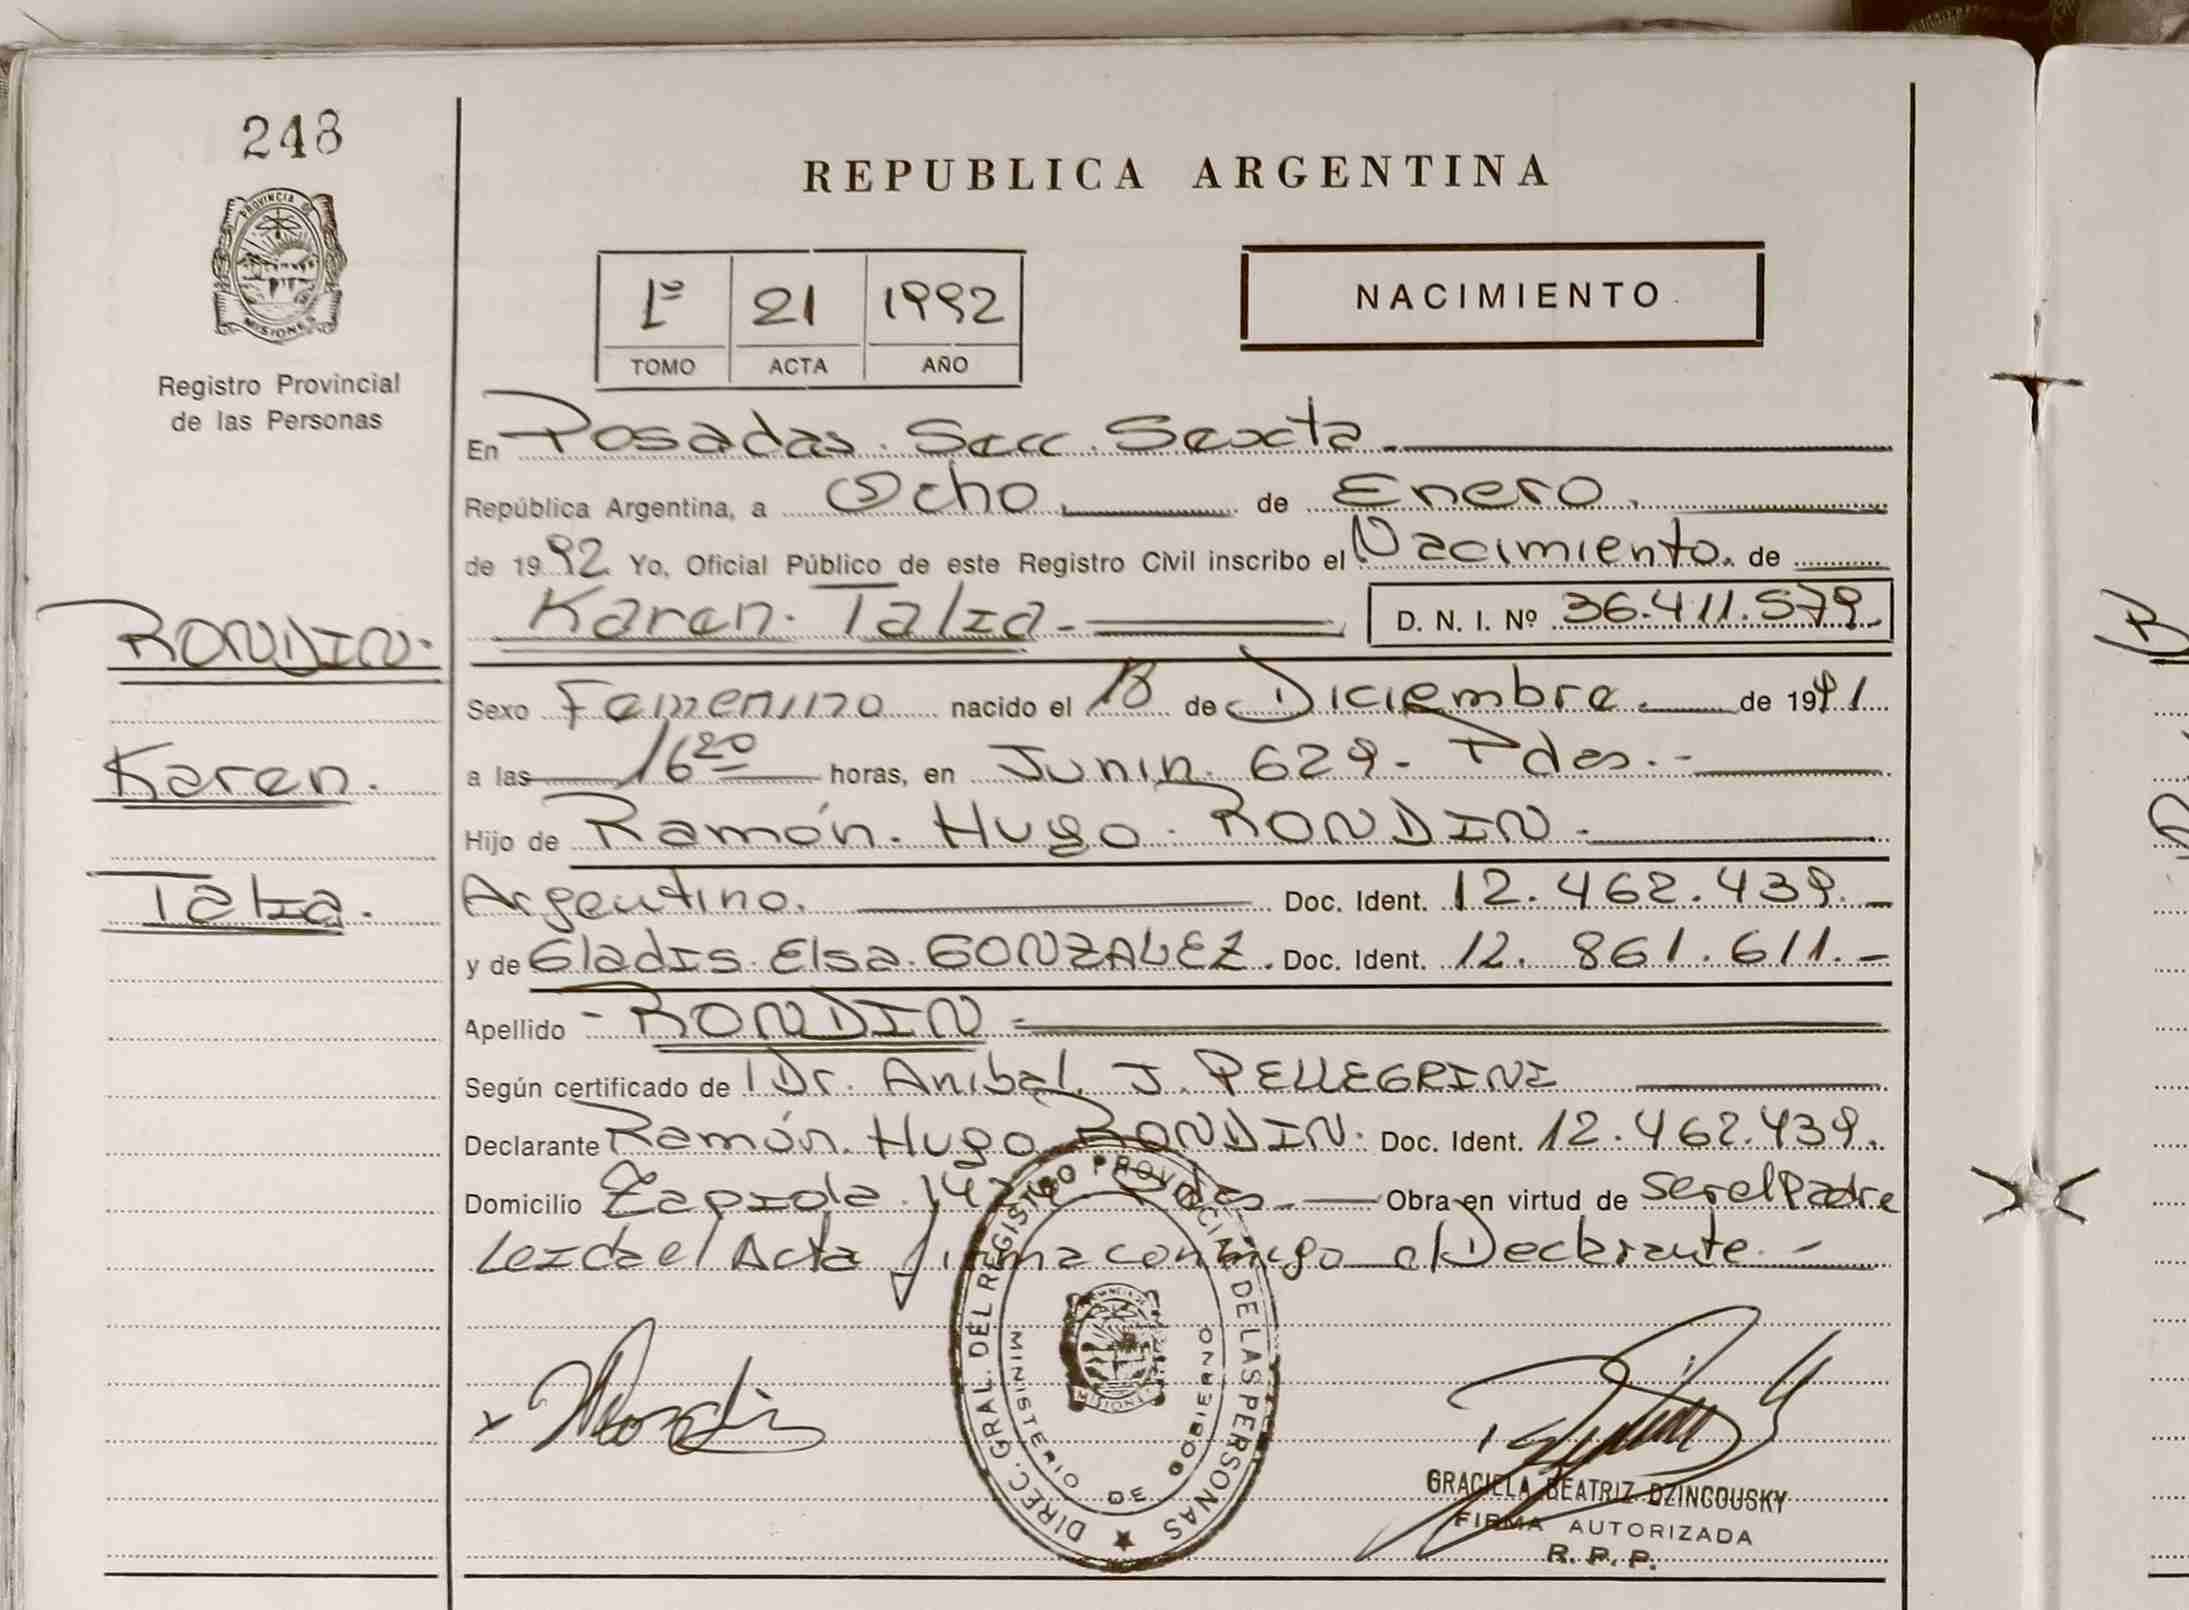 248
PROVINCIA DE
MISIONES
Registro Provincial
de las Personas
REPUBLICA ARGENTINA
1º 21 1992
TOMO ACTA AÑO
NACIMIENTO
En Posadas. Secc. Sexta.
República Argentina, a Ocho de Enero.
de 1992 Yo, Oficial Público de este Registro Civil inscribo el Nacimiento. de
Karen. Talia. D. N. I. Nº 36.411.579.
RONDIN.
Karen.
Talia.
Sexo Femenino nacido el 18 de Diciembre. de 1991
a las 16 20 horas, en Junin. 629. Pdas.
Hijo de Ramón. Hugo. RONDIN.
Argentino. Doc. Ident. 12.462.439.
y de Gladis. Elsa. GONZALEZ. Doc. Ident. 12. 861.611.
Apellido - RONDIN
Según certificado de Dr. Anibal. J. PELLEGRINI
Declarante Ramón. Hugo RONDIN. Doc. Ident. 12.462.439.
Domicilio Zapiola. Pdas. Obra en virtud de ser el Padre
Leida el Acta firma conmigo el Declarante.
DIREC. GRAL. DEL REGISTRO PROVINCIAL DE LAS PERSONAS
MINISTERIO DE GOBIERNO
MISIONES
GRACIELA BEATRIZ DZINCOUSKY
FIRMA AUTORIZADA
R. P. P.